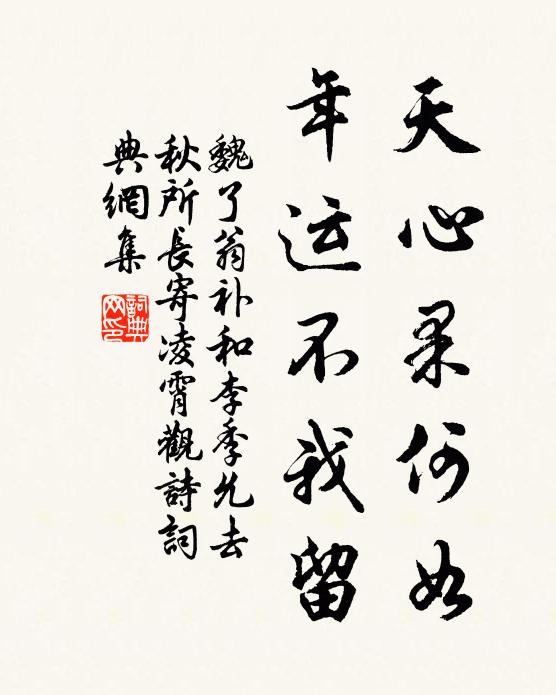 天心果何如
年运不我留
魏了翁补和李季允去
秋所長寄凌霄觀詩詞
典網集
詞典网印